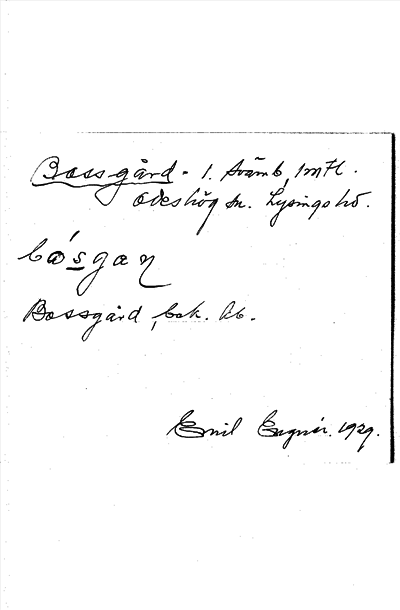 Bossgård - 1. Svämb, 1 mtl.
Ödeshög sn. Lysings hd.
bósgaɳ
Bossgård, bok. Ab.
Emil 1929.